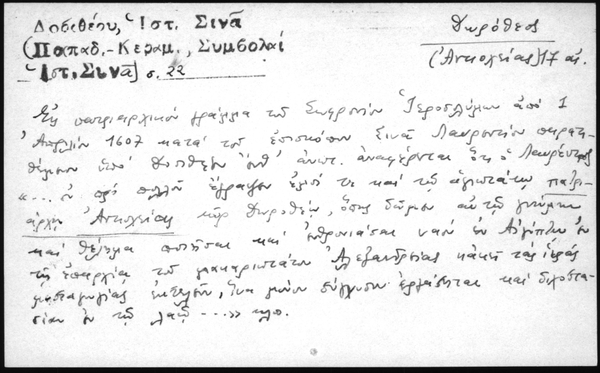 Δοσιθέου, Ἱστ. Σινᾶ
(Παπαδ.-Κεραμ., Συμβολαί
Ἱστ. Σινᾶ) σ. 22
Δωρόθεος
(Ἀντιοχείας) 17 αἰ.
Εἰς πατριαρχικόν γράμμα τοῦ Σωφρονίου Ἱεροσολύμων ἀπό 1
Ἀπριλίου 1607 κατά τοῦ ἐπισκόπου Σινᾶ Λαυρεντίου παρατι-
θέμενον ὑπό Δοσιθέου ἀναφέρεται ὅτι ὁ Λαυρέντιος
«... πρό πολλοῦ ἔγραψεν ἐμοί τε καί τῷ ἁγιωτάτῳ πατρι-
άρχῃ Ἀντιοχείας κὺρ Δωροθέῳ, δῶμεν αὐτῷ γνώμην
καί θέλημα ποιῆσαι καί ἐνθρονιάσαι ναόν ἐν Αἰγύπτῳ ἐν
τῇ ἐπαρχίᾳ τοῦ μακαριωτάτου Ἀλεξανδρείας κἀκεῖ τάς ἱεράς
μυσταγωγίας ἐκτελεῖν, ἵνα μόνον σύγχυσιν ἐργάσηται καί διχοστα-
σίαν ἐν τῷ λαῷ ...» κλπ.